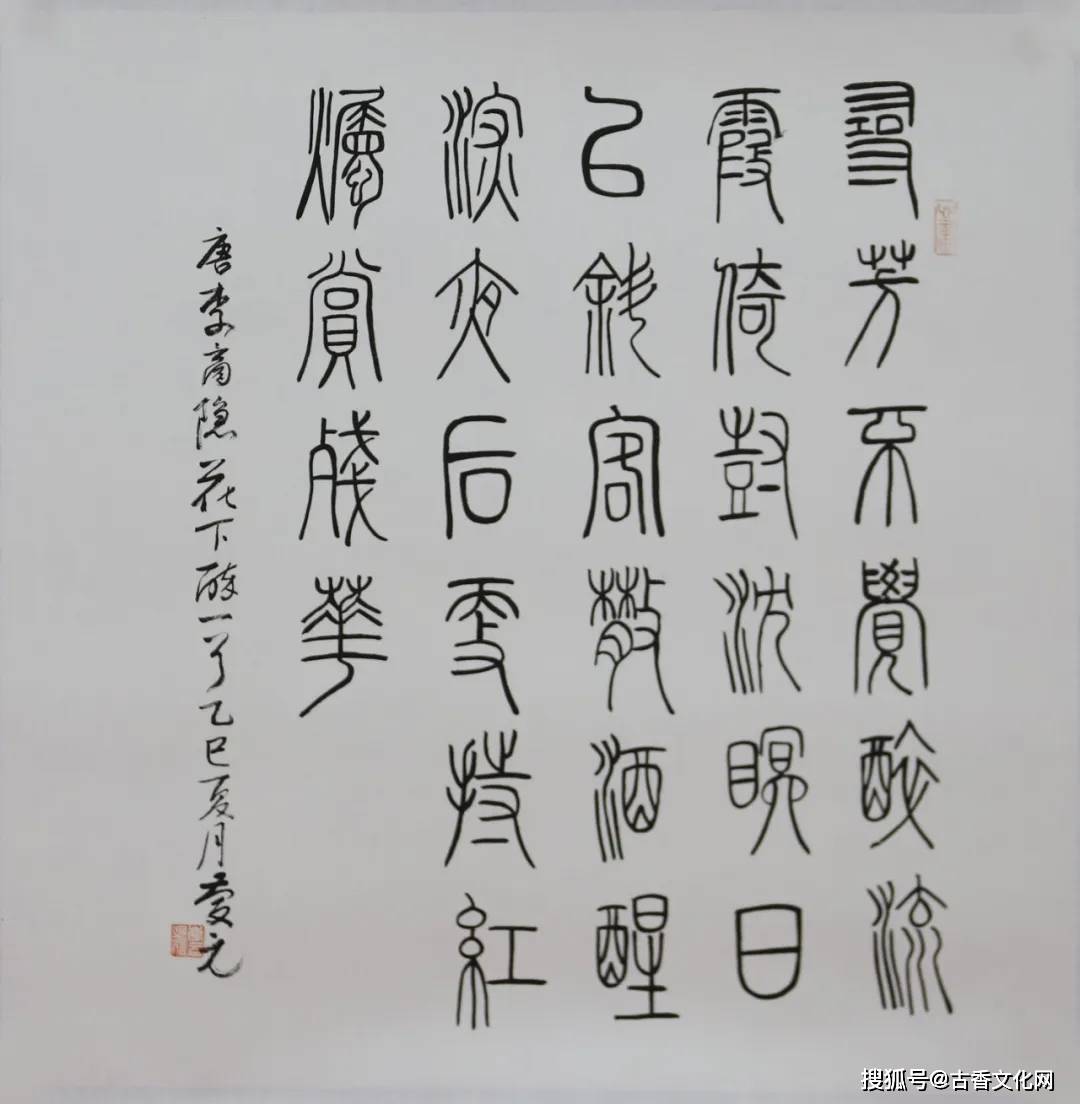 尋芳不覺醉流
霞倚尌沈眠日
已斜客散酒醒
深夜后更持紅
燭賞殘華
唐李商隐花下醉一首乙巳夏月慶元
搜狐号@古香文化网